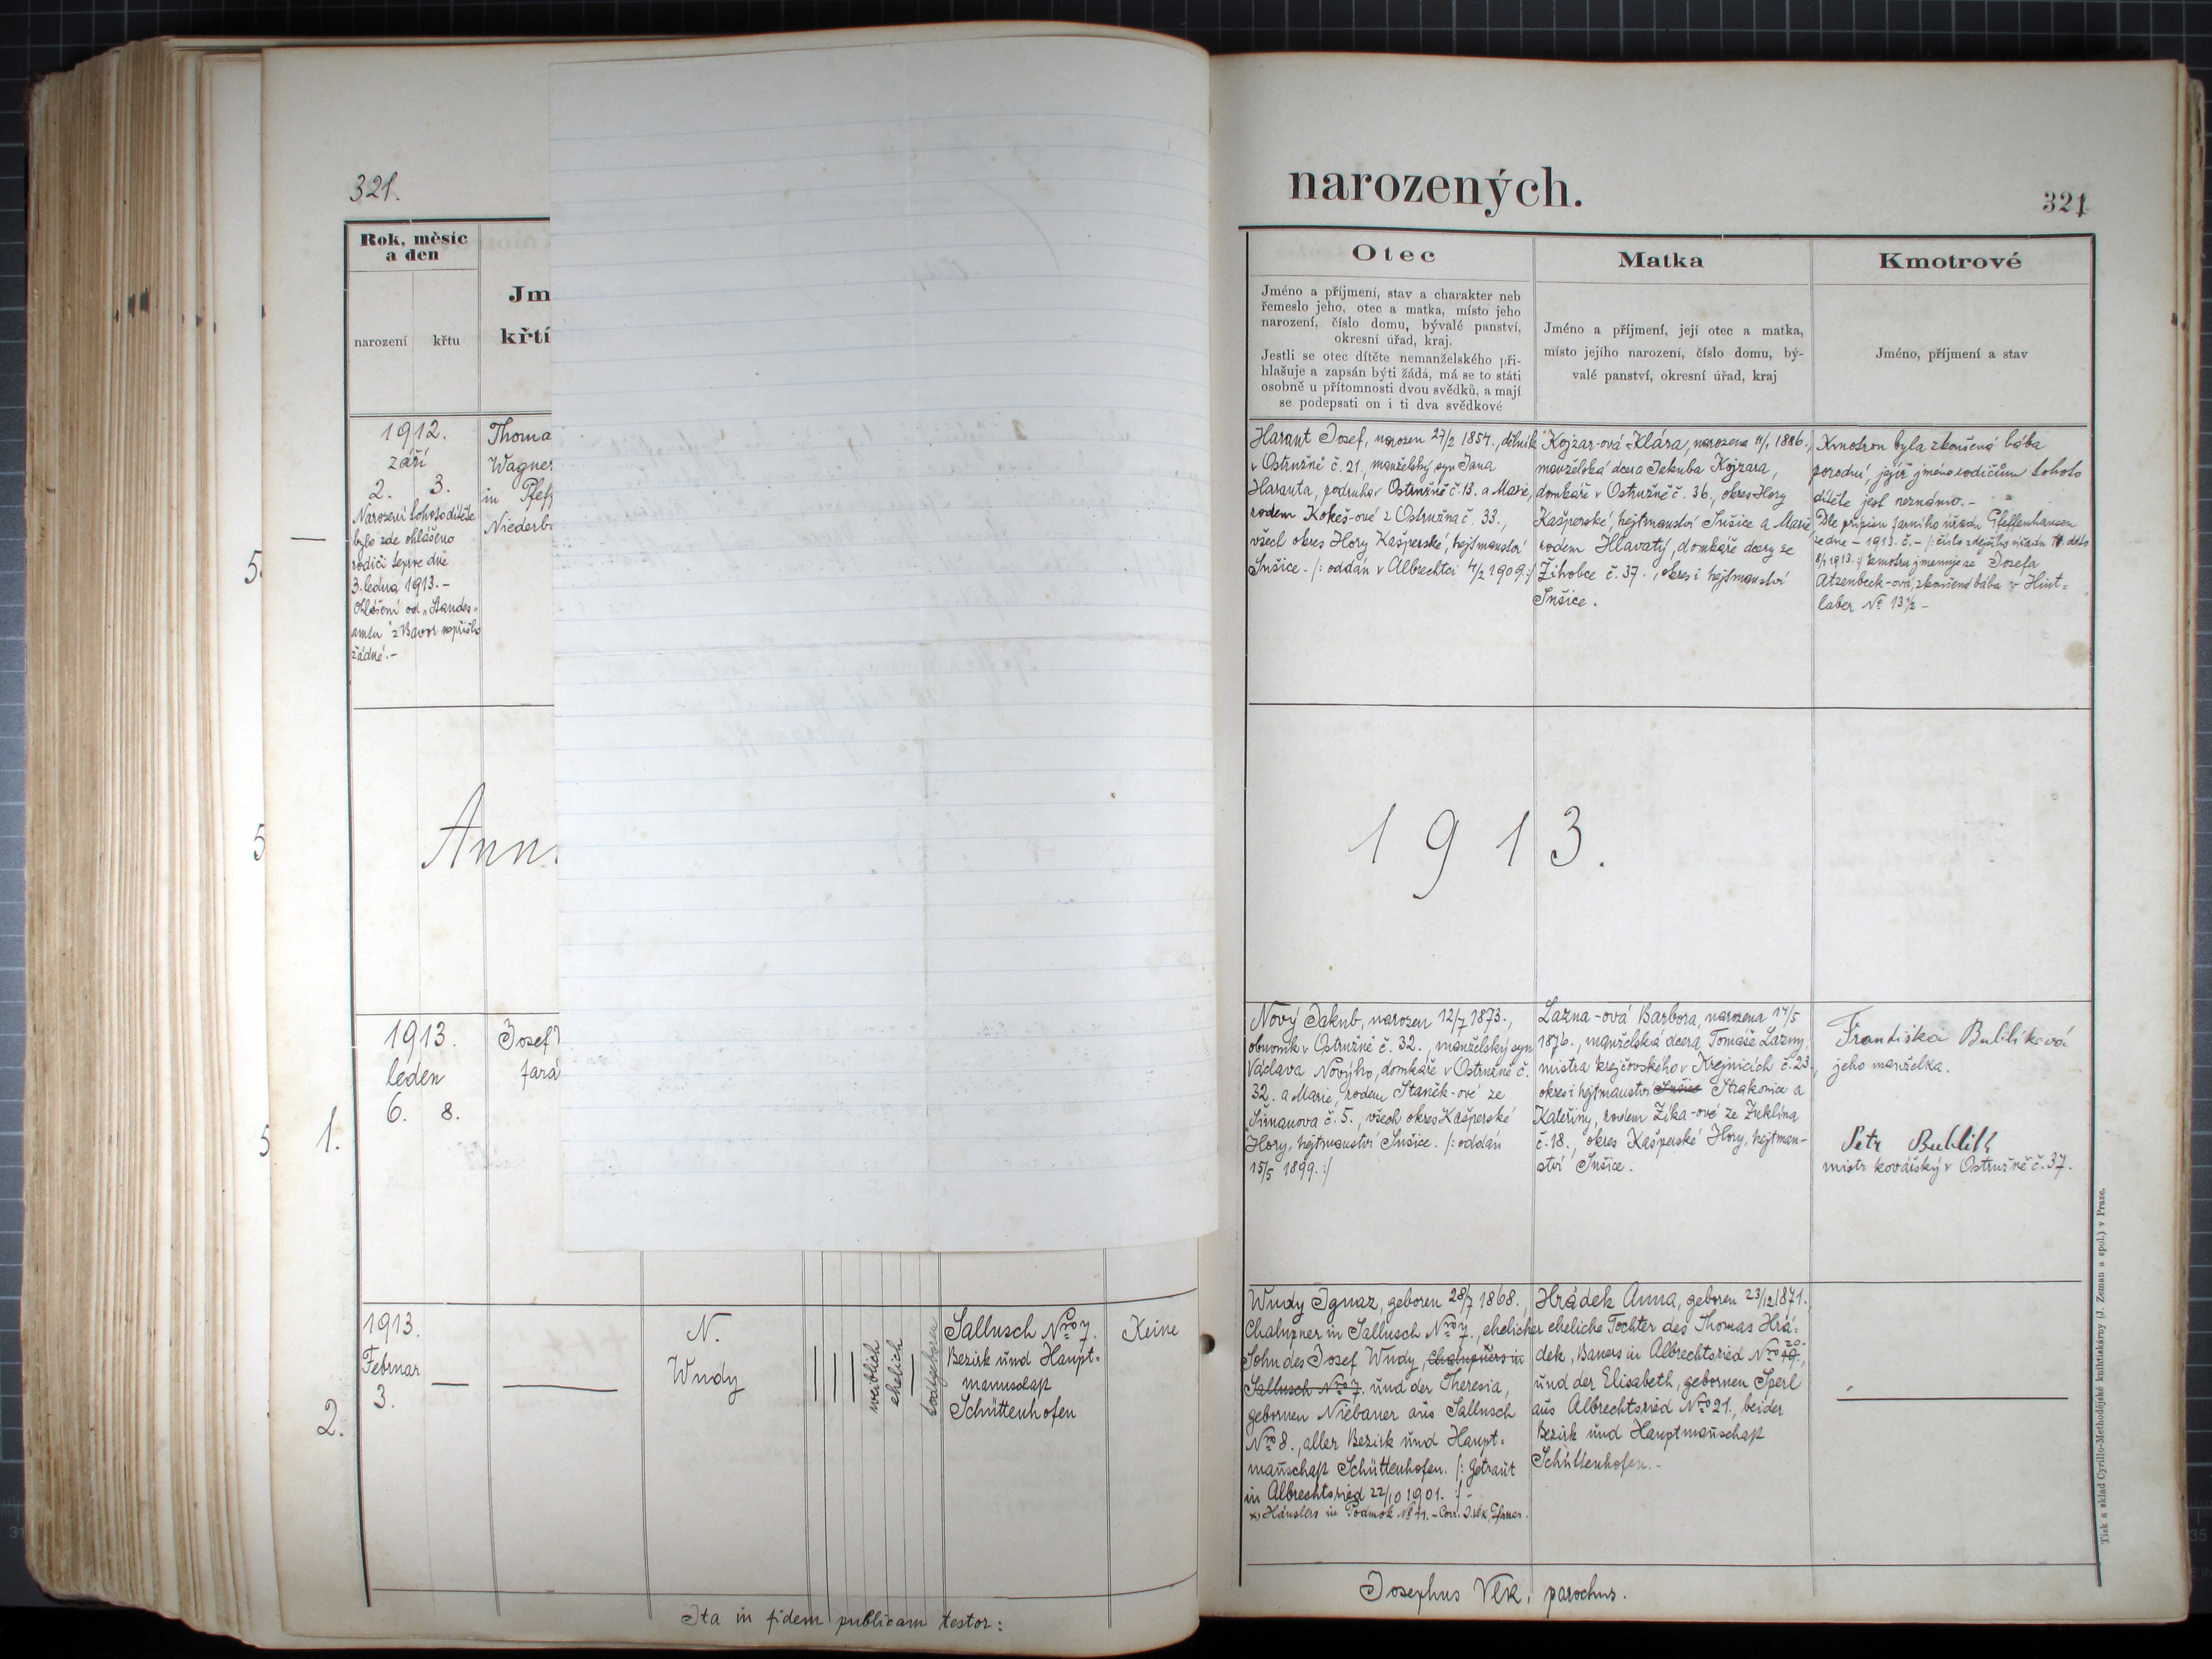 321.
Rok, měsíc
a den
narození
křtu
Jm
křtí
1912.
září
2. 3.
Narození tohoto dítěte
bylo zde ohlášeno
rodiči teprve dne
3. ledna 1913.-
Ohlášení od „Standes-
amtu" z Bavor nepřišlo
žádné.-
Thoma
Wagner
in Pfeff
Niederb
5.
Ann.
5
1913.
leden
6. 8.
Josef
fará
1.
5
1913.
Februar
3.
N.
Wudy
weiblich
ehelich
todtgeboren
Sallusch Nro 7.
Bezirk und Haupt-
mannschap
Schüttenhofen
Keine
2.
Ita in fidem publicam testor:
narozených.
321
Otec
Jméno a příjmení, stav a charakter neb
řemeslo jeho, otec a matka, místo jeho
narození, číslo domu, bývalé panství,
okresní úřad, kraj.
Jestli se otec dítěte nemanželského při-
hlašuje a zapsán býti žádá, má se to státi
osobně u přítomnosti dvou svědků, a mají
se podepsati on i ti dva svědkové
Matka
Jméno a příjmení, její otec a matka,
místo jejího narození, číslo domu, bý-
valé panství, okresní úřad, kraj
Kmotrové
Jméno, příjmení a stav
Harant Josef, narozen 27/2 1854., dělník
v Ostružně č. 21, manželský syn Jana
Haranta, podruha v Ostružně č. 13. a Marie,
rodem Kokeš-ové z Ostružna č. 33.,
všech okres Hory Kašperské, hejtmanství
Sušice. /: oddán v Albrechtci 4/2 1909. :/
Kojzar-ová Klára, narozena 11/1 1886.,
manželská dcera Jakuba Kojzara,
domkáře v Ostružně č. 36., okres Hory
Kašperské, hejtmanství Sušice a Marie
rodem Hlavatý, domkáře dcery ze
Žihobce č. 37., okres i hejtmanství
Sušice.
Kmotrou byla zkoušená bába
porodní, jejíž jméno rodičům tohoto
dítěte jest neznámo.-
Dle přípisu farního úřadu Pfeffenhausen
ze dne - 1913. č. - /: číslo zdejšího úřadu ddto
8/1 1913. :/ kmotra jmenuje se Josefa
Atzenbeck-ová, zkoušená bába v Hint-
laber No 13½ -
1913.
Nový Jakub, narozen 12/7 1873.,
obuvník v Ostružně č. 32., manželský syn
Václava Novýho, domkáře v Ostružně č.
32. a Marie, rodem Staněk-ové ze
Šimanova č. 5., všech okres Kašperské
Hory, hejtmanství Sušice. /: oddán
15/5 1899. :/
Lazna-ová Barbora, narozena 14/5
1876., manželská dcera Tomáše Lazny,
mistra krejčovského v Krejnicích č. 23.,
okres i hejtmanství Sušice Strakonice a
Kateřiny, rodem Zíka-ové ze Zuklína
č. 18., okres Kašperské Hory, hejtman-
ství Sušice.
Františka Bublíková
jeho manželka.
Petr Bublík
mistr kovářský v Ostružně č. 37.
Wudy Ignaz, geboren 28/7 1868.,
Chalupner in Sallusch Nro 7., ehelicher
Sohn des Josef Wudy, Chalupners in
Sallusch Nro 7. und der Theresia,
gebornen Niebauer aus Sallusch
Nro 8., aller Bezirk und Haupt-
mannschap Schüttenhofen. /: Getraut
in Albrechtsried 22/10 1901. :/ -
x) Häuslers in Podmok No 71. - Corr. J. Vlk, Pfarrer.
Hrádek Anna, geboren 23/12 1871.,
eheliche Tochter des Thomas Hrá-
dek, Bauers in Albrechtsried Nro 19. 20.,
und der Elisabeth, gebornen Sperl
aus Albrechtsried Nro 21., beider
Bezirk und Hauptmannschap
Schüttenhofen.-
Josephus Vlk, parochus.
Tisk a sklad Cyrillo-Methodějské knihtiskárny (J. Zeman a spol.) v Praze.